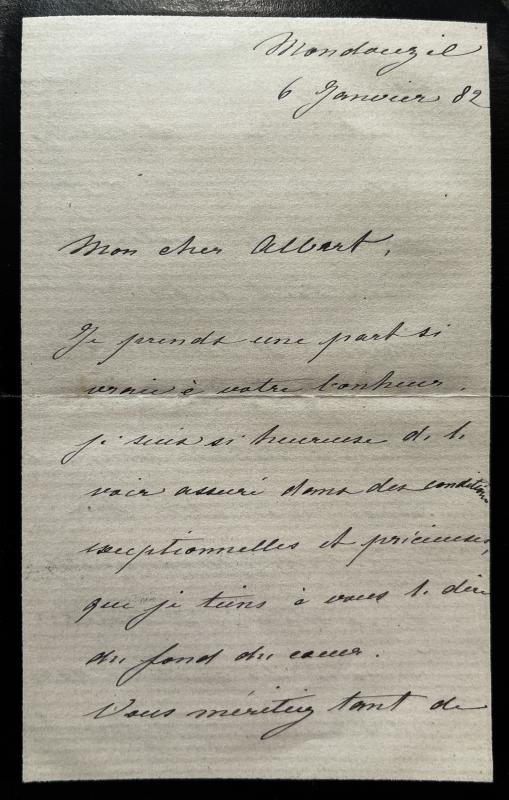 Mondouzil
6 Janvier 82
Mon cher Albert,
Je prends une part si
vraie à votre bonheur,
je suis si heureuse de le
voir assuré dans des conditions
exceptionnelles et précieuses,
que je tiens à vous le dire
du fond du cœur.
Vous méritiez tant de